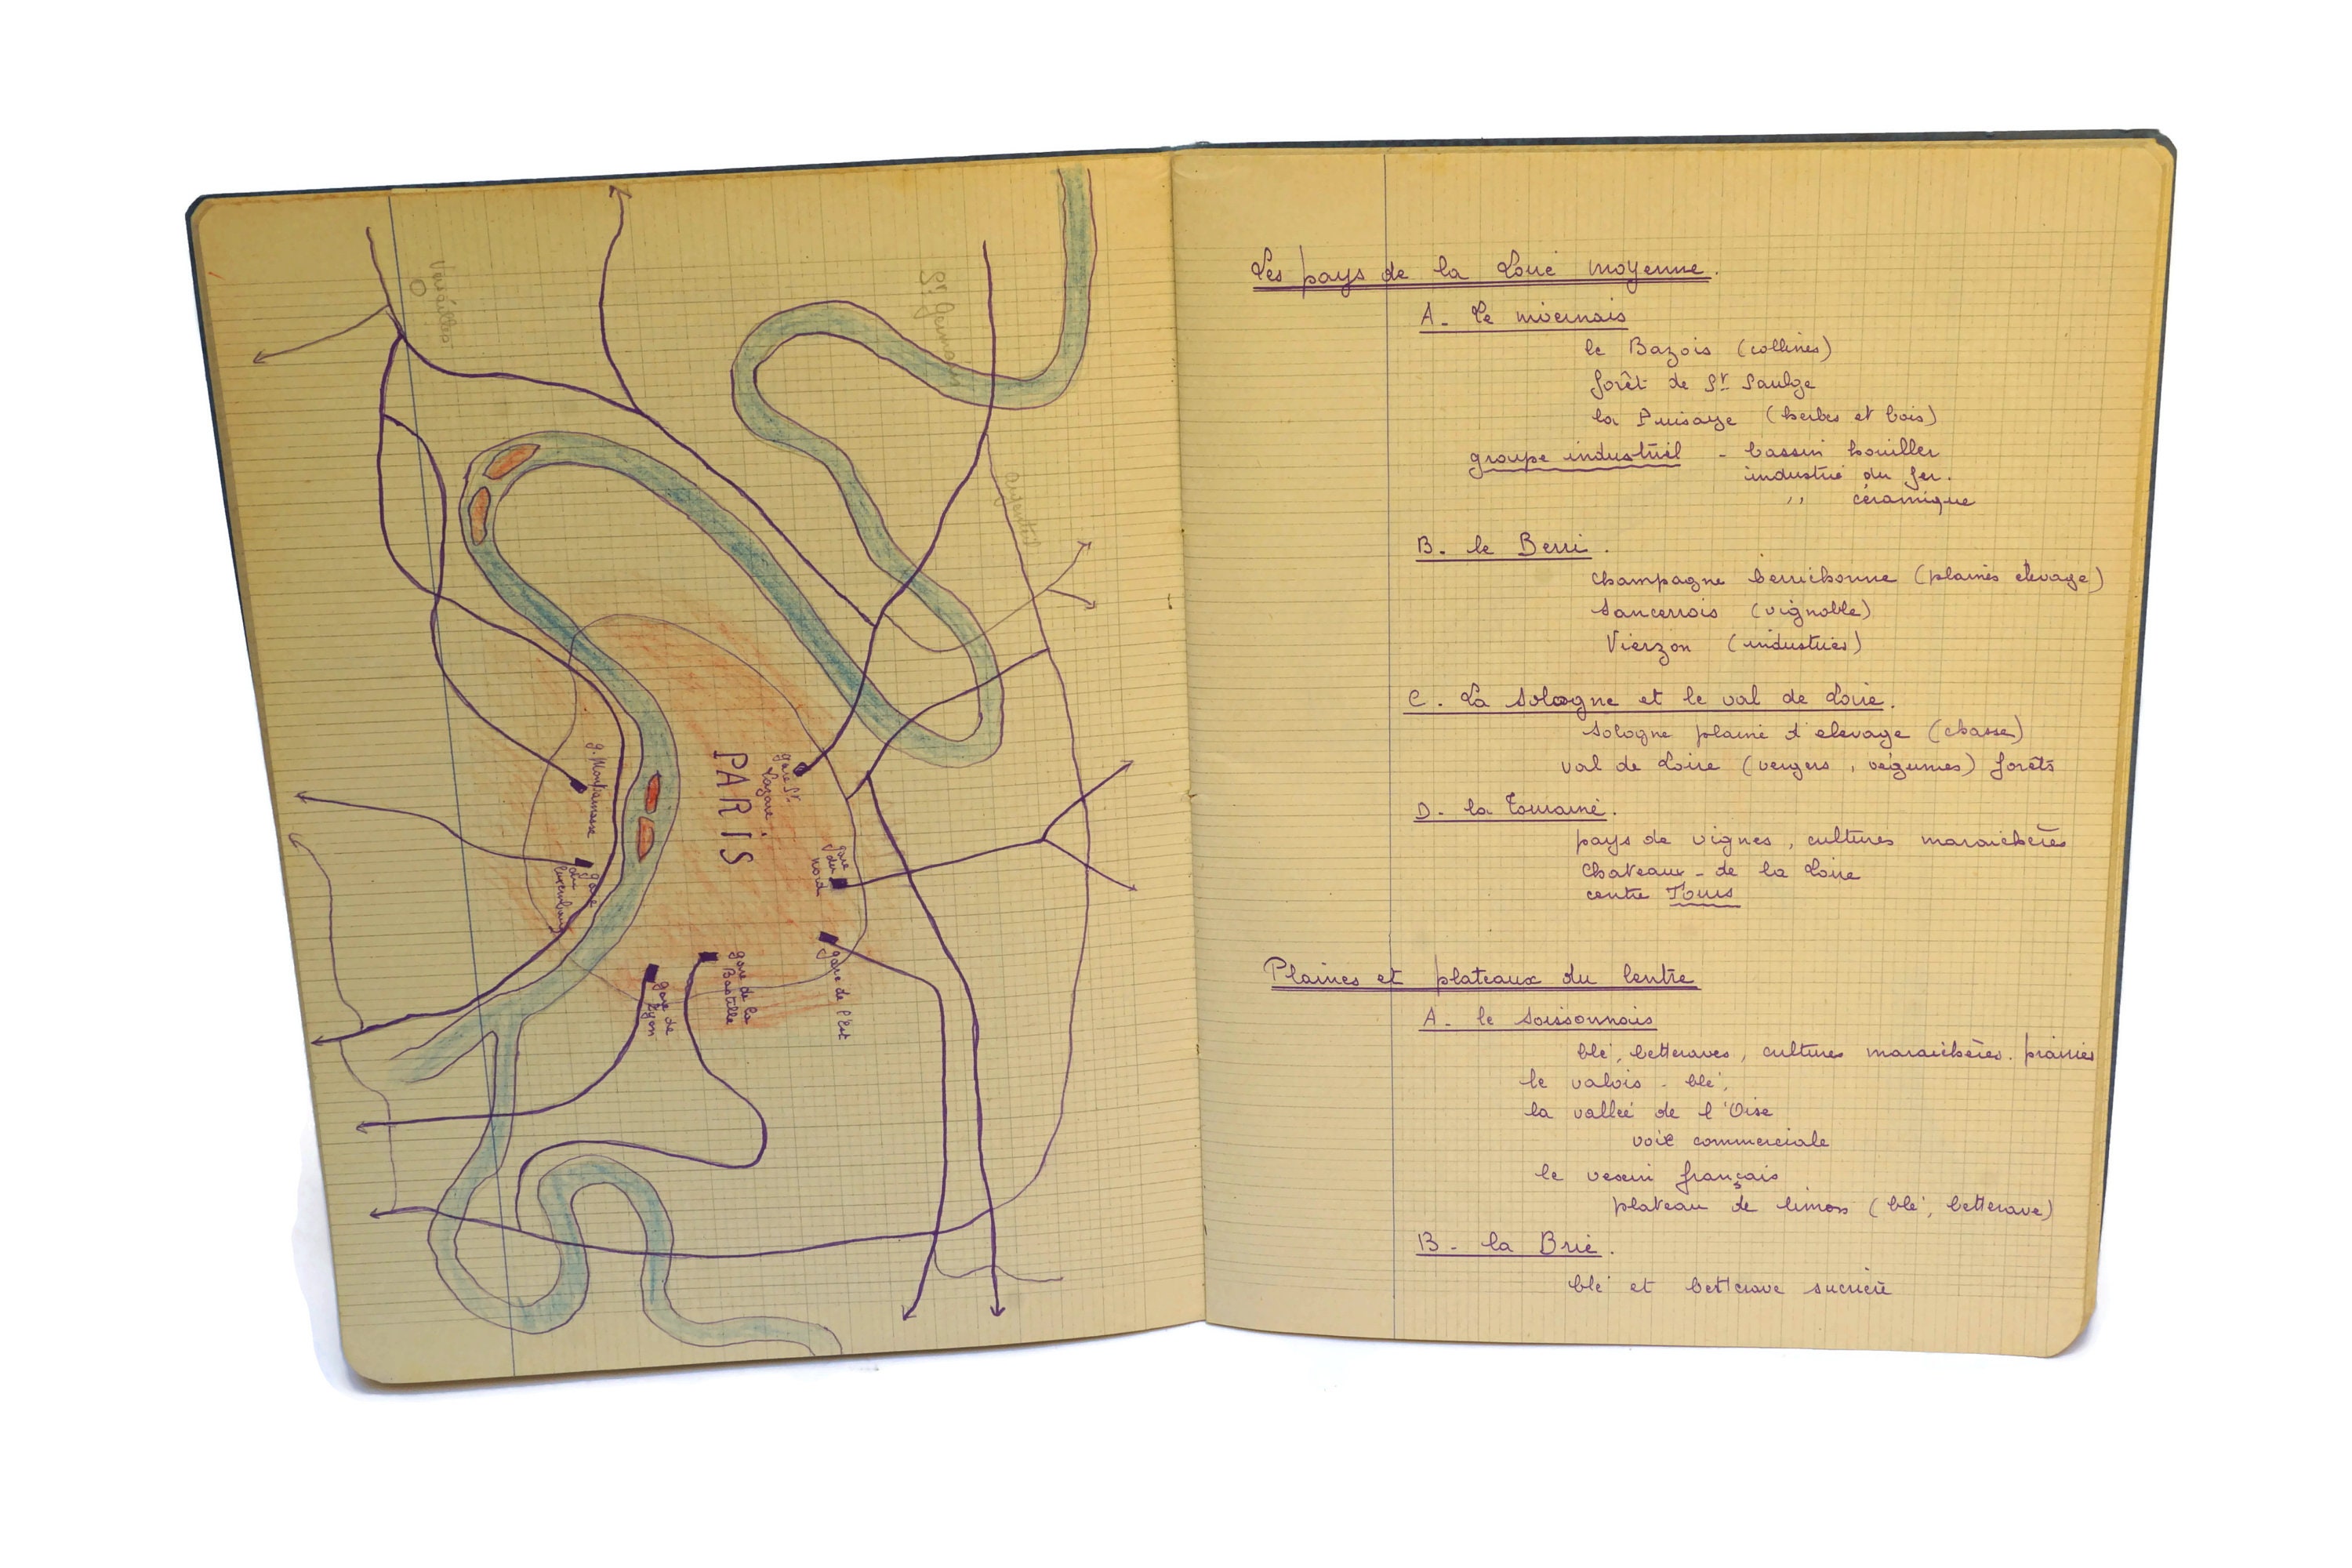 Versailles
St Germain
Argenteuil
PARIS
gare St
Lazare
g. Montparnasse
gare
du
Luxembourg
gare
du
nord
gare de l'Est
gare de la
Bastille
gare de
Lyon
Les pays de la Loire moyenne.
A. Le nivernais
le Bazois (collines)
forêt de St Saulge
la Puisaye (herbes et bois)
groupe industriel - bassin houiller
industrie du fer.
,, céramique
B. le Berri.
champagne berrichonne (plaines élevage)
Sancerrois (vignoble)
Vierzon (industries)
C. La Sologne et le val de Loire.
Sologne plaine d'elevage (chasse)
val de Loire (vergers, végumes) forêts
D. la Touraine.
pays de vignes, cultures maraichères
Chateaux - de la Loire
centre Tours
Plaines et plateaux du Centre
A. le Soissonnais
blé, betteraves, cultures maraichères. prairies
le valois - blé,
la vallée de l'Oise
voie commerciale
le vexin français
plateau de limon (blé, betterave)
B - la Brie.
blé et betterave sucrière